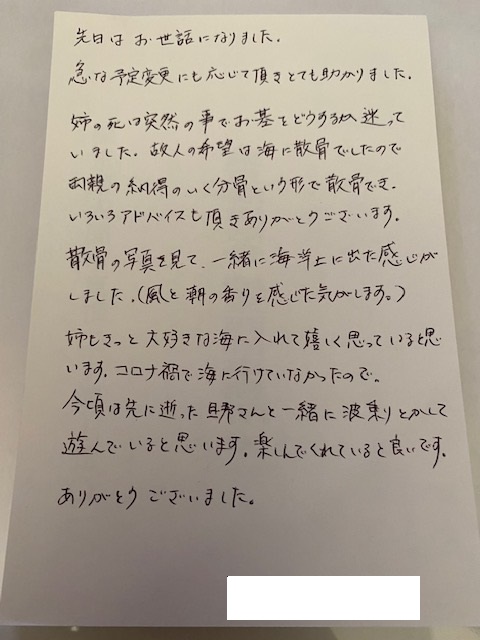 先日は お世話になりました.
急な予定変更にも応じて頂きとても助かりました.
姉の死は突然の事でお墓をどうするか迷って
いました. 故人の希望は海に散骨でしたので
両親の納得のいく分骨という形で散骨でき.
いろいろアドバイスも頂きありがとうございます.
散骨の写真を見て、一緒に海洋上に出た感じが
しました.(風と潮の香りを感じた気がします。)
姉もきっと大好きな海に入れて嬉しく思っていると思
います. コロナ禍で海に行けていなかったので。
今頃は先に逝った旦那さんと一緒に波乗りとかして
遊んでいると思います. 楽しんでくれていると良いです.
ありがとうございました。